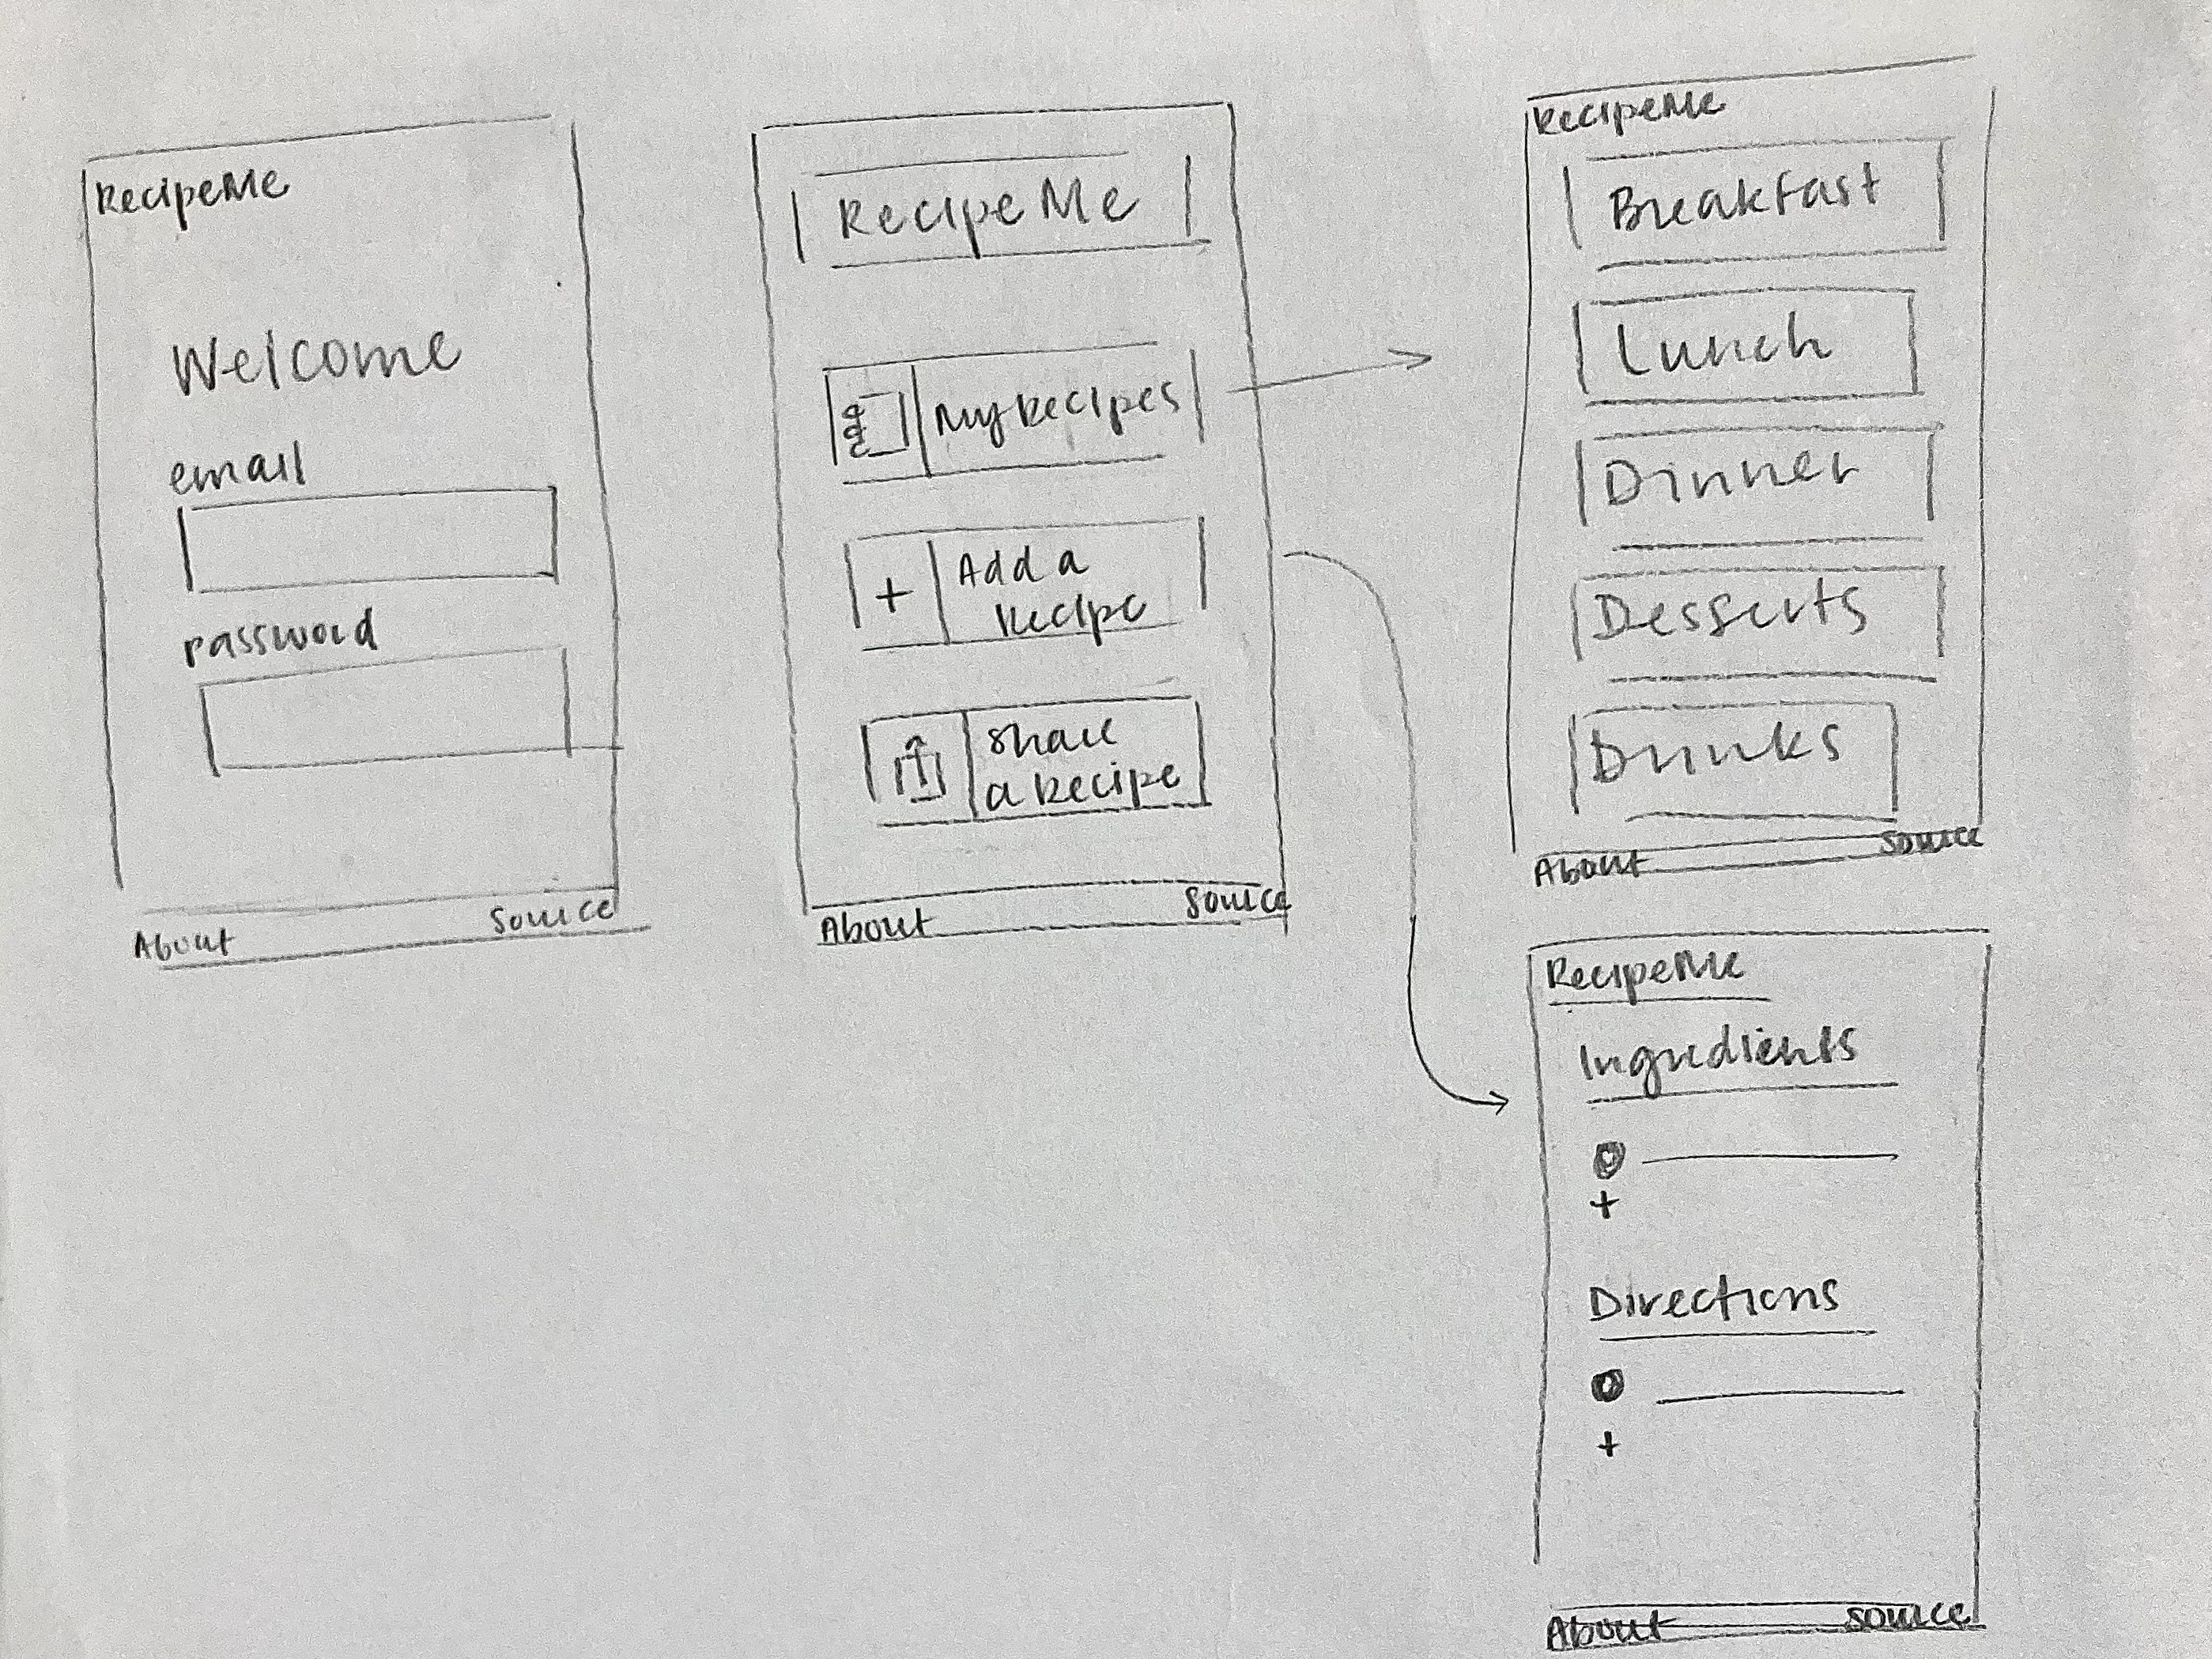 RecipeMe
Welcome
email
password
About
Source
RecipeMe
My Recipes
+
Add a
Recipe
Share
a Recipe
About
Source
RecipeMe
Breakfast
Lunch
Dinner
Desserts
Drinks
About
Source
RecipeMe
Ingredients
+
Directions
+
About
Source